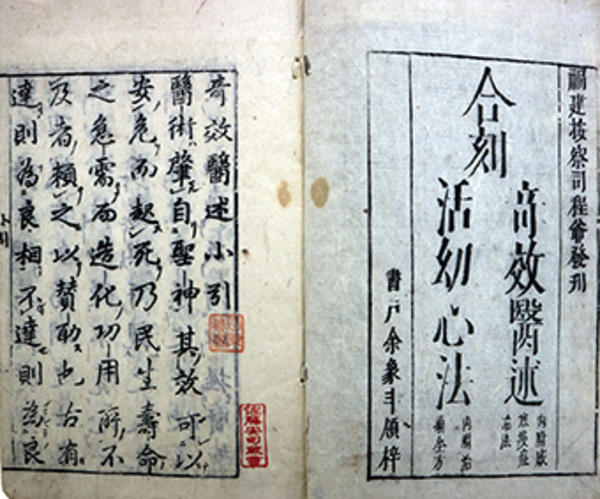 福建按察司程爺發刊
合刻
奇效醫述
活幼心法
書戶余象斗領梓
奇效醫述小引
醫術肇自聖神其效可以
安危而起死乃民生壽命
之急需而造化功用所不
及者賴之以贊助也古有
達則為良相不達則為良